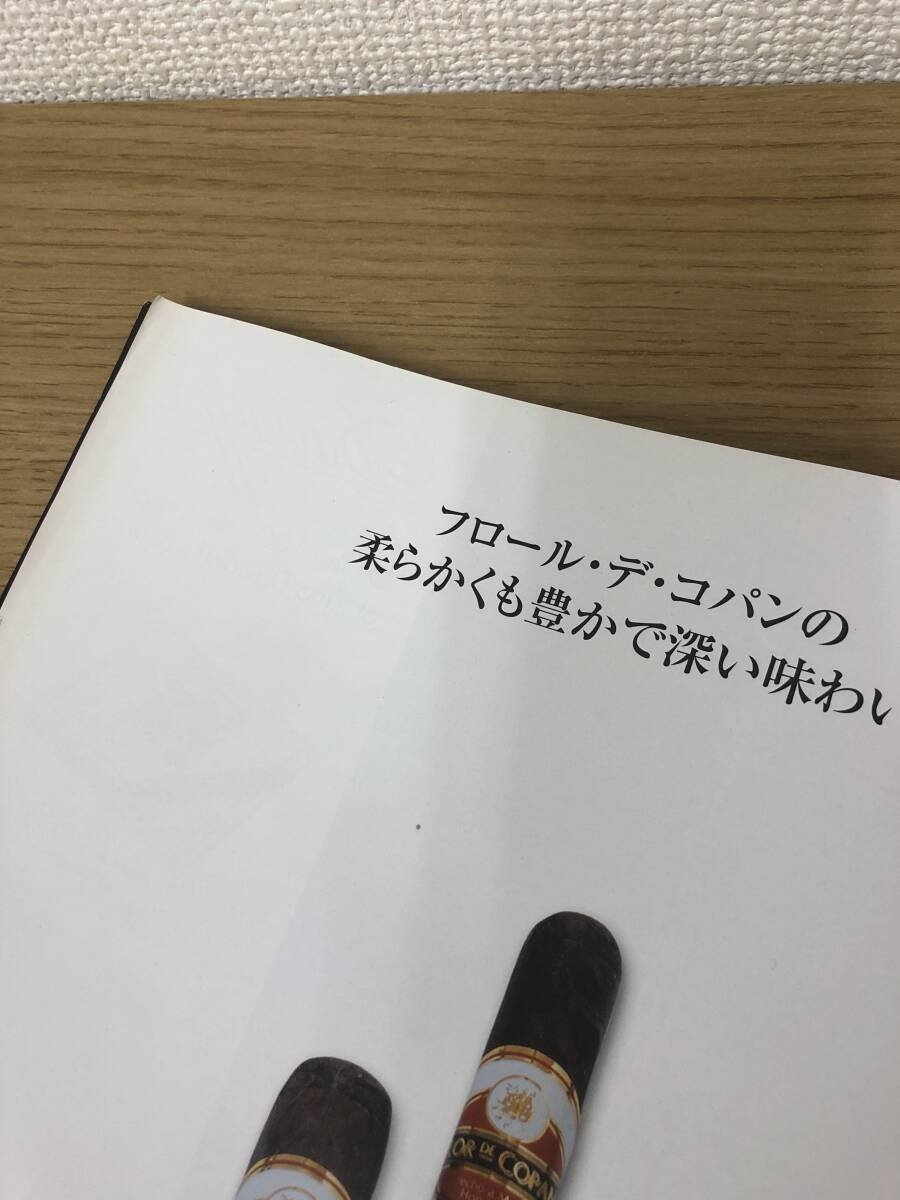 フロール・デ・コパンの
柔らかくも豊かで深い味わい
LOR DE COPAN